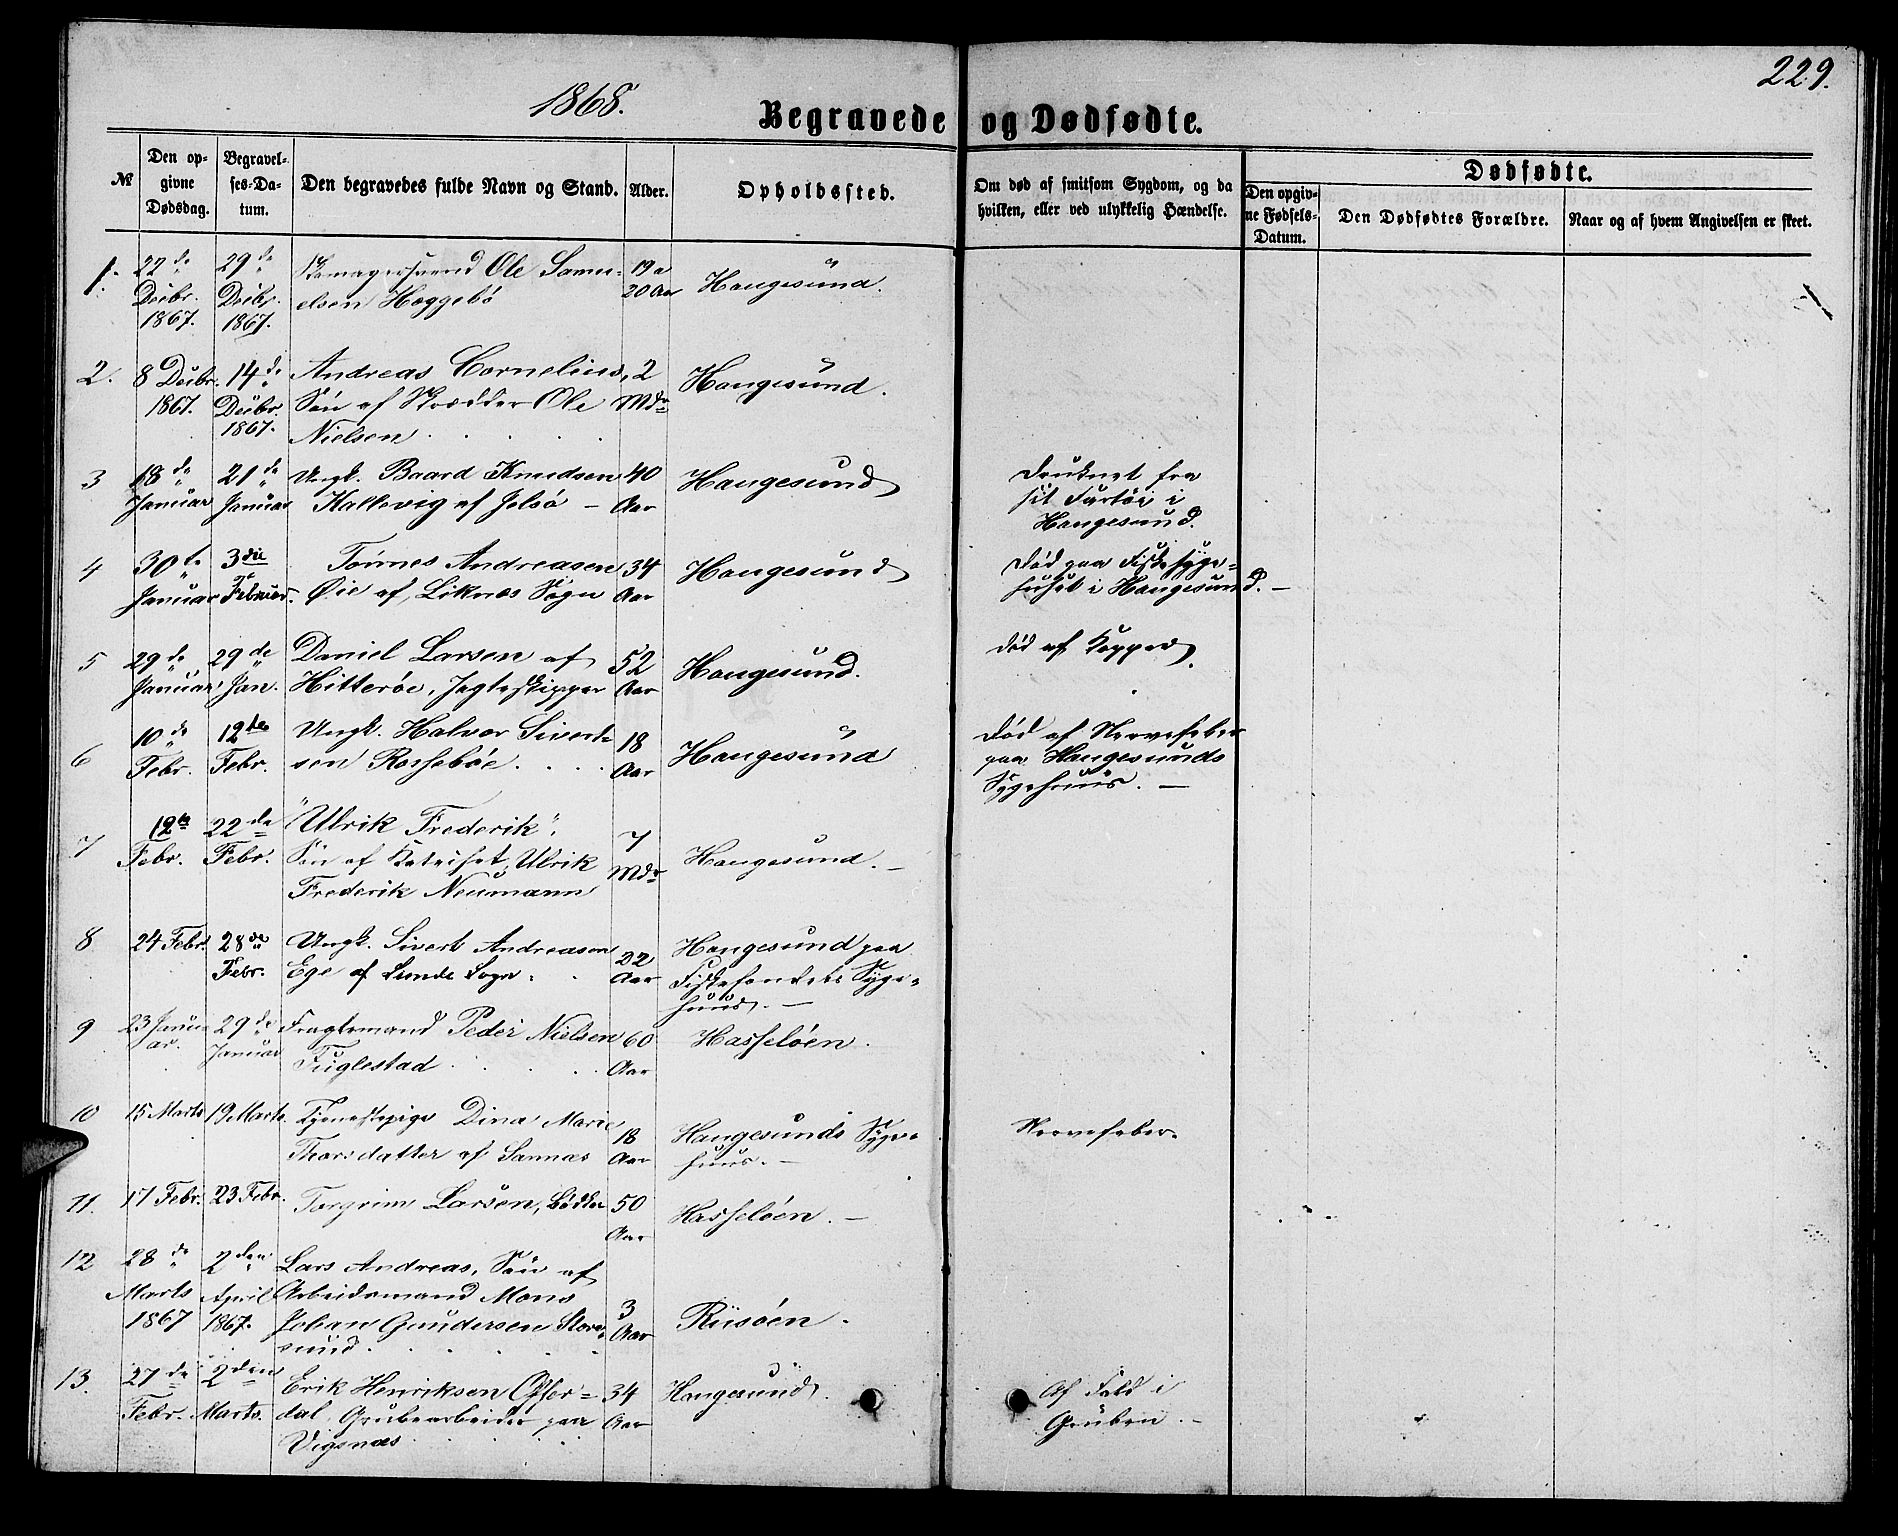 1868.
229.
Begravede og Dødfødte.
№
Den opgivne Dødsdag.
Begravelses-Datum.
Den begravedes fulde Navn og Stand.
Alder.
Opholdssted.
Om død af smitsom Sygdom, og da hvilken, eller ved ulykkelig Hændelse.
Dødfødte.
Den opgivne Fødsels-Datum.
Den Dødfødtes Forældre.
Naar og af hvem Angivelsen er skeet.
1. 22de Decbr. 1867. 29de Decbr. 1867. Skomagersvend Ole Samuelsen Haggebö 19 a 20 Aar Haugesund.
2. 8 Decbr. 1867. 14de Decbr. 1867. Andreas Cornelius, Sön af Skrædder Ole Nielsen 2 Mdr Haugesund.
3 18de Januar 21de Januar Ungk. Baard Knudsen Kallevig af Jelsö – 40 Aar Haugesund druknet fra sit Fartöi i Haugesund.
4 30te Januar 3die Februar. Tönnes Andreasen Øie af, Liknæs Sogn 34 Aar Haugesund Död paa Fiskesygehuset i Haugesund. –
5 29de Januar 29de Jan. Daniel Larsen af Hitteröe, Jagteskipper 52 Aar Haugesund. död af Kopper.
6 10de Febr. 12te Febr. Ungk. Halvor Sivertsen Rossebøe. 18 Aar Haugesund död af Nervefeber paa Haugesunds Sygehuus. –
7 12te Febr. 22de Febr. "Ulrik Frederik", Sön af Katechet, Ulrik Frederik Neumann 7 Mdr Haugesund. –
8 24 Febr. 28de Febr. Ungk. Sivert Andreasen Ege af Lunde Sogn. 22 Aar Haugesund paa Fiskefondets Sygehuus. –
9 23 Januar. 29de Januar Fragtemand Peder Nielsen Fuglestad 60 Aar Hasselöen.
10 15 Marts 19 Marts. Tjenestepige Dina Marie Thorsdatter af Sannæs 18 Aar Haugesunds Sygehuus. – Nervefeber.
11. 17 Febr. 23 Febr. Torgrim Larsen, Bödker 50 Aar Hasselöen. –
12 28de Marts 1867 2den April 1867. Lars Andreas, Sön af Arbeidsmand Mons Johan Gundersen Storesund. 3 Aar Riisöen.
13. 27de Febr. 2den Marts. Erik Henriksen Offerdal, Grubearbeider paa Vigsnæs 34 Aar Haugesund. Af Fald i Gruben. –